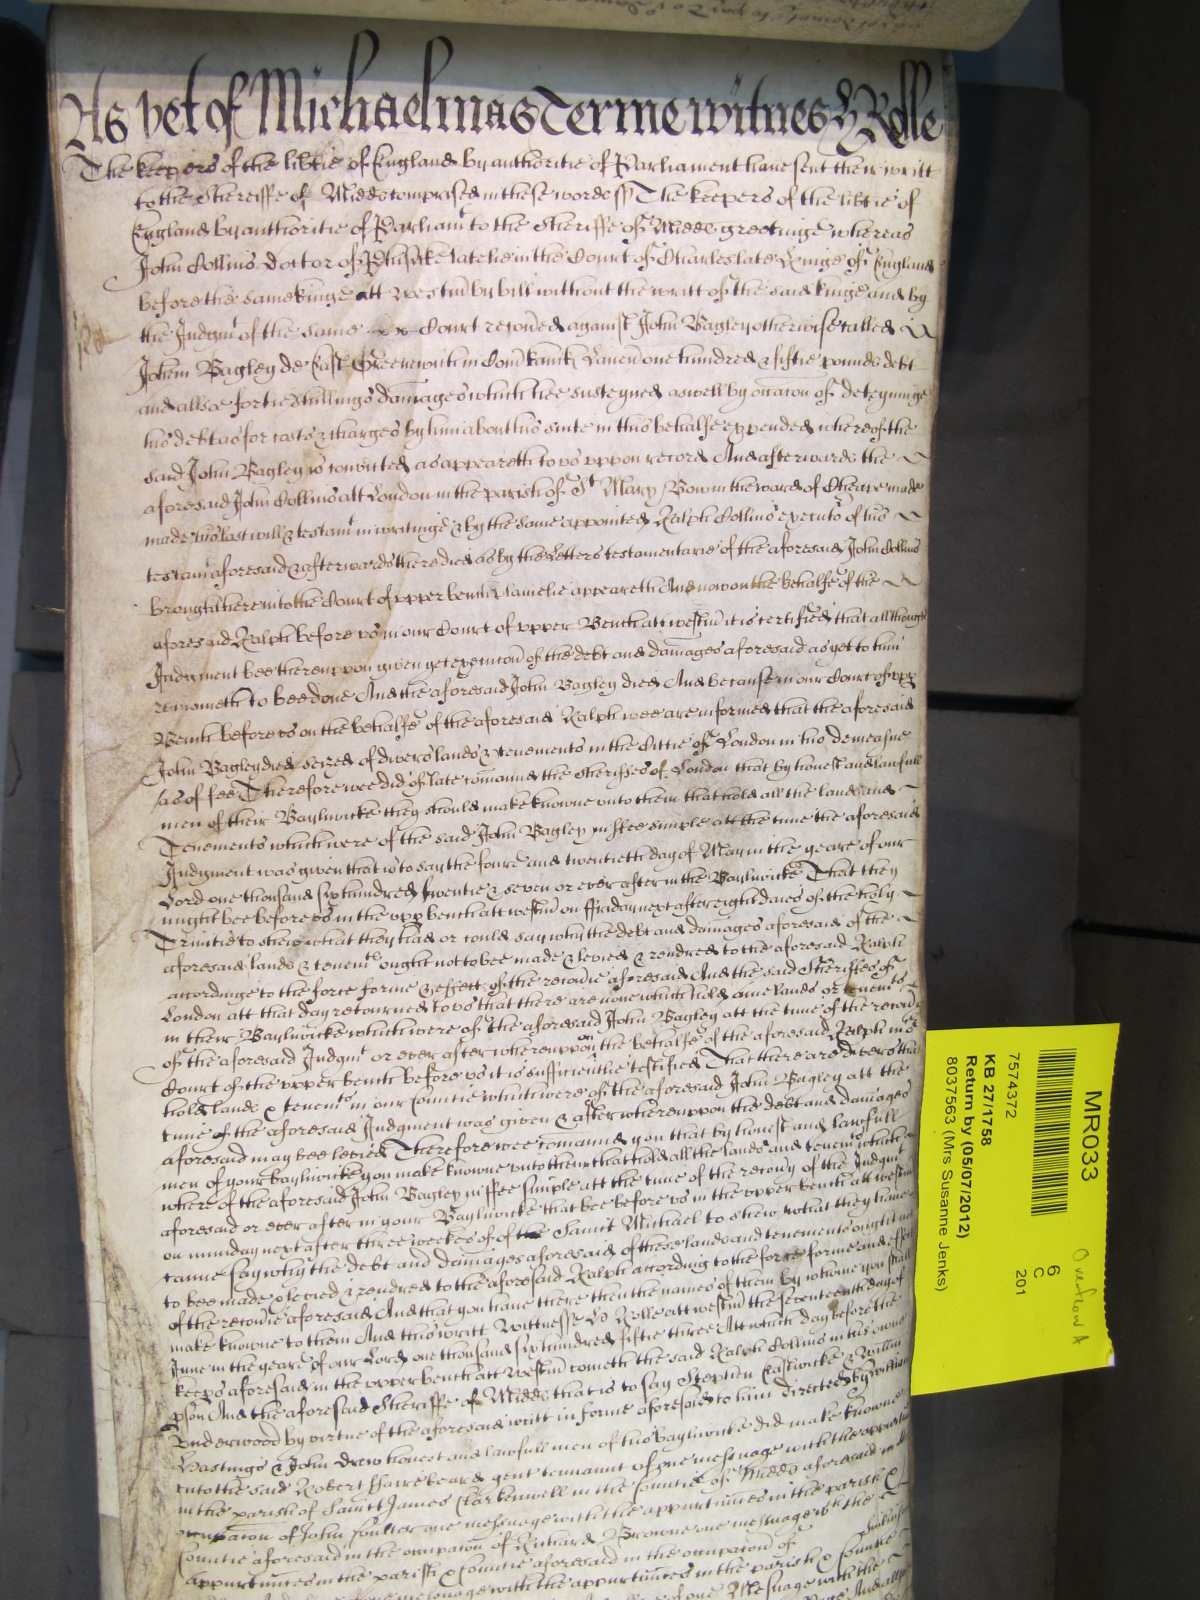 As yet of Michaelmas Terme witnes H Rolle
The keepers of the libtie of England by authoritie of Parliament have sent their writt
to the Sheriffe of Midds comprised in these words ss The keepers of the libtie of
England by authoritie of Parliamt to the Sheriffe of Midds greetinge whereas
John Collins Doctor of Phisicke latelie in the Court of Charles late Kinge of England
before the same kinge att Westm by bill without the writt of the said kinge and by
the Judgmt of the same Court recoved against John Bagley otherwise called
John Bagley de East Greenewich in Com Kanc one hundred & fiftie pounds debt
and allsoe fortie shillings damages which hee susteyned aswell by occacon of deteyninge
his debt as for costs & charges by him about his suite in this behalfe expended whereof the
said John Bagley is convicted as appeareth to us uppon record And afterwards the
aforesaid John Collins att London in the parish of St Mary Bow in the ward of Cheape made
made his last will & testamt in writinge & by the same appointed Ralph Collins executor of his
testamt aforesaid & afterwards there died as by the Letters testamentarie of the aforesaid John Collins
brought here into the Court of upper bench latelie appeareth And now on the behalfe of the
aforesaid Ralph before us in our Court of upper Bench att westm it is certified that allthough
Judgment bee thereuppon given yet execucon of the debt and damages aforesaid as yet to him
remaineth to bee done And the aforesaid John Bagley died And because in our Court of upp
Bench before us on the behalfe of the aforesaid Ralph wee are informed that the aforesaid
John Bagley died seized of divers lands & tenements in the Cittie of London in his demeasne
as of fee Therefore wee did of late comaund the Sheriffes of London that by honest and lawfull
men of their Baylwicke they should make knowne unto them that hold all the lands and
Tenements which were of the said John Bagley in fee simple att the time the aforesaid
Judgment was given that is to say the foure and twentieth day of May in the yeare of our
Lord one thousand six hundred twentie & seven or ever after in the Baylwicke That they
might bee before us in the upp bench att westm on ffriday next after eight daies of the holy
Trinitie to shew what they had or could say why the debt and damages aforesaid of the
aforesaid lands & tenemts ought not to bee made & levied & rendred to the aforesaid Ralph
accordinge to the force forme & effect of the recovie aforesaid And the said Sheriffes of
London att that day retourned to us that there are none which hold anie lands or tenemts
in their Baylwicke which were of the aforesaid John Bagley att the time of the
of the aforesaid Judgmt or ever after whereuppon on the behalfe of the aforesaid Ralph in
Court of the upper bench before us it is sufficientlie testified That there are divers that
hold lands & tenemts in our Countie which were of the aforesaid John Bagley att the
time of the aforesaid Judgment was given & after whereuppon the debt and damages
aforesaid may bee levied Therefore wee comaund you that by honest and lawfull
men of your baylwicke you make knowne unto them that hold all the lands and tenemts which
where of the aforesaid John Bagley in ffee simple att the time of the recovy of the Judgmt
aforesaid or ever after in your Baylwicke that bee before us in the upper bench att westm
on munday next after three weekes of of the Saint Michael to shew what they have
cann say why the debt and damages aforesaid of these lands and tenements ought not
to bee made & levied & rendred to the aforesaid Ralph according to the force forme and effect
of the recovie aforesaid And that you have there then the names of them by whome you shall
make knowne to them And this writt Wittnesse H Rolle att westm the seventeenth day of
June in the yeare of our Lord one thousand six hundred fiftie three Att which day before the
keeps aforesaid in the upper bench att Westm cometh the said Ralph Collins in his owne
pson And the aforesaid Sheriffe of Midds that is to say Stephen Eastwicke & Willm
Underwood by virtue of the aforesaid writt in forme aforesaid to him directed by William
Hastings & John Drew honest and lawfull men of his baylwicke did make knowne
unto the said Robert Hairebeard gent tennant of one messuage with the appurtes
in the parish of Saint James Clarkenwell in the Countie of Midds aforesaid in
occupacon of John one messuage with the appurtnnces in the parish &
Countie aforesaid in the occupacon of Richard Browne one messuage with the
appurtnnces in the parish & Countie aforesaid in the occupacon of
messuage with the appurtnnces in the parish & Countie
of one Messuage with the
MR033
6
C
201
Overflow A
7574372
KB 27/1758
Return by (05/07/2012)
8037563 (Mrs Susanne Jenks)